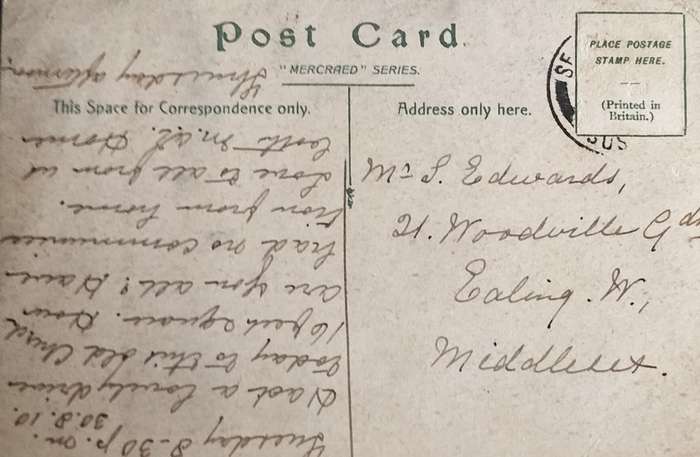 Post Card.
"MERCRAED" SERIES.
This Space for Correspondence only.
Address only here.
PLACE POSTAGE
STAMP HERE.
(Printed in
Britain.)
SE
SUS
Mr S. Edwards,
21. Woodville Gdn
Ealing. W.,
Middlesex.
Tuesday 8-30 p.m.
30.8.10.
Had a lovely drive
today to this old Church
16 feet square. How
are you all? Have
had no communica
tion from home.
Love to all from us
both M. & L. Home
Thursday afternoon.